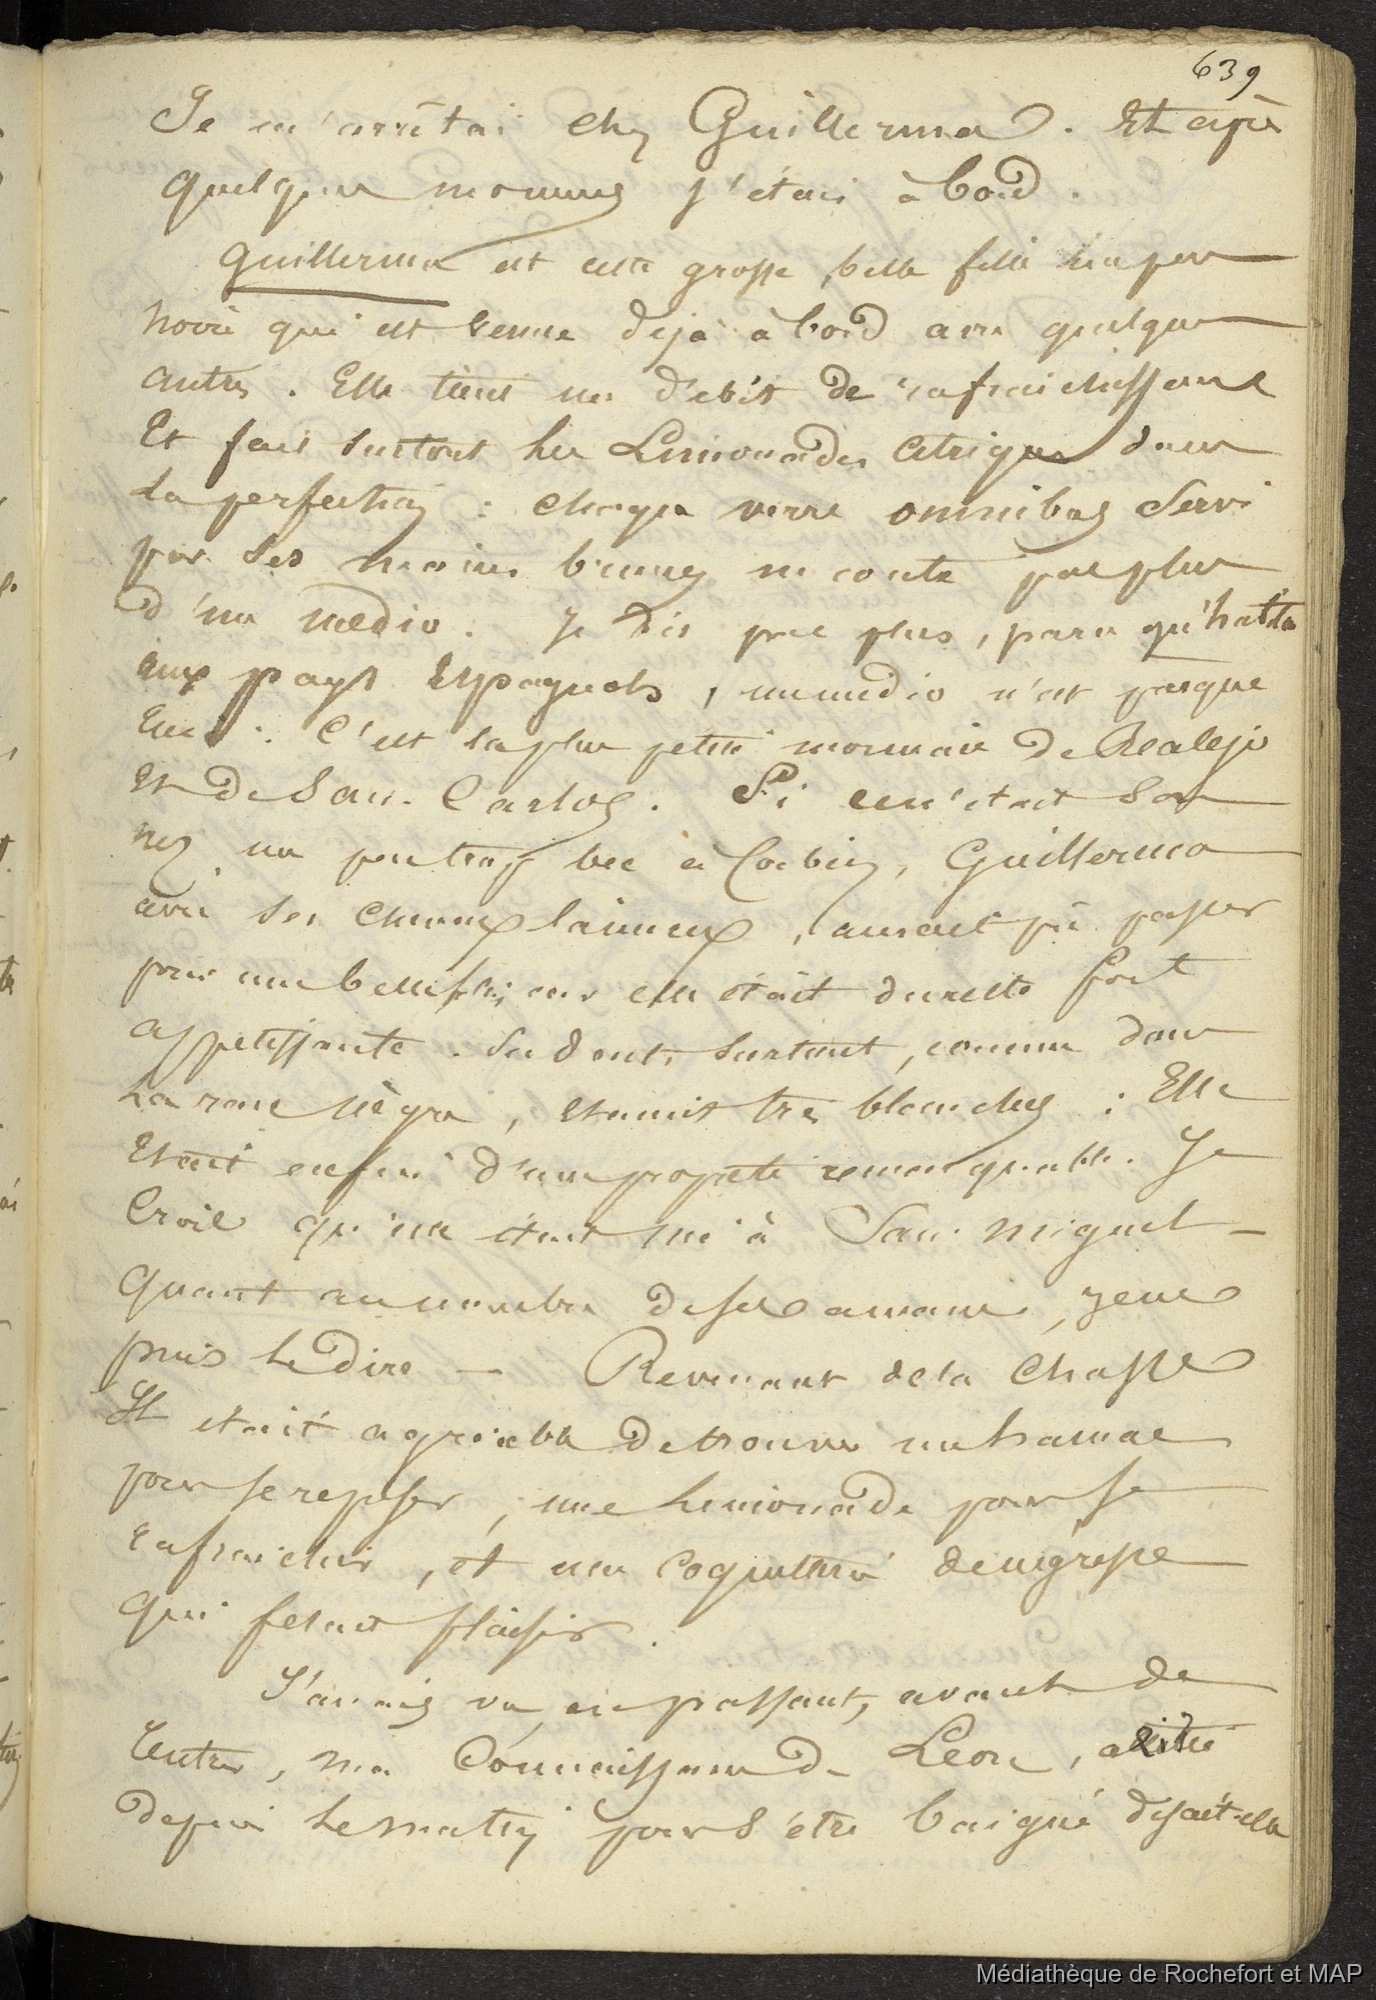 639
Je m'arrêtai chez Guillerma. Et après
quelques momens j'étais à bord.
Guillerma est cette grosse belle fille un peu
noire qui est venue déjà à bord avec quelques
autres. Elle tient un débit de rafraichissemens
Et fait surtout les Limonades Citriques dans
la perfection : chaque verre omnibus servi
par ses mains brunes ne coute pas plus
d'un medio. Je dis pas plus, parce qu'habitué
aux pays Espagnols, un medio n'est presque
rien : C'est la plus petite monnaie de Realejo
Et de San-Carlos. Si ce n'était son
nez un peu trop bec à Corbin, Guillerma
avec ses cheveux laineux, aurait pû passer
pour une belle fille, car elle était du reste fort
appetissante. Ses dents surtout, comme dans
La race nègre, étaient très blanches ; Elle
Etait enfin d'une propreté remarquable. Je
Crois qu'elle était née à San-Miguel —
Quant au nombre de ses amans, je ne
puis le dire — Revenant de la chasse
Il était agréable de trouver un hamac
pour se reposer, une limonade pour se
rafraichir, et une coquetterie de négresse
qui fesait plaisir.
J'avais vu en passant, avant de
rentrer, ma connaissance de Léon, alitée
depuis le matin pour s'être baignée disait-elle
Médiathèque de Rochefort et MAP